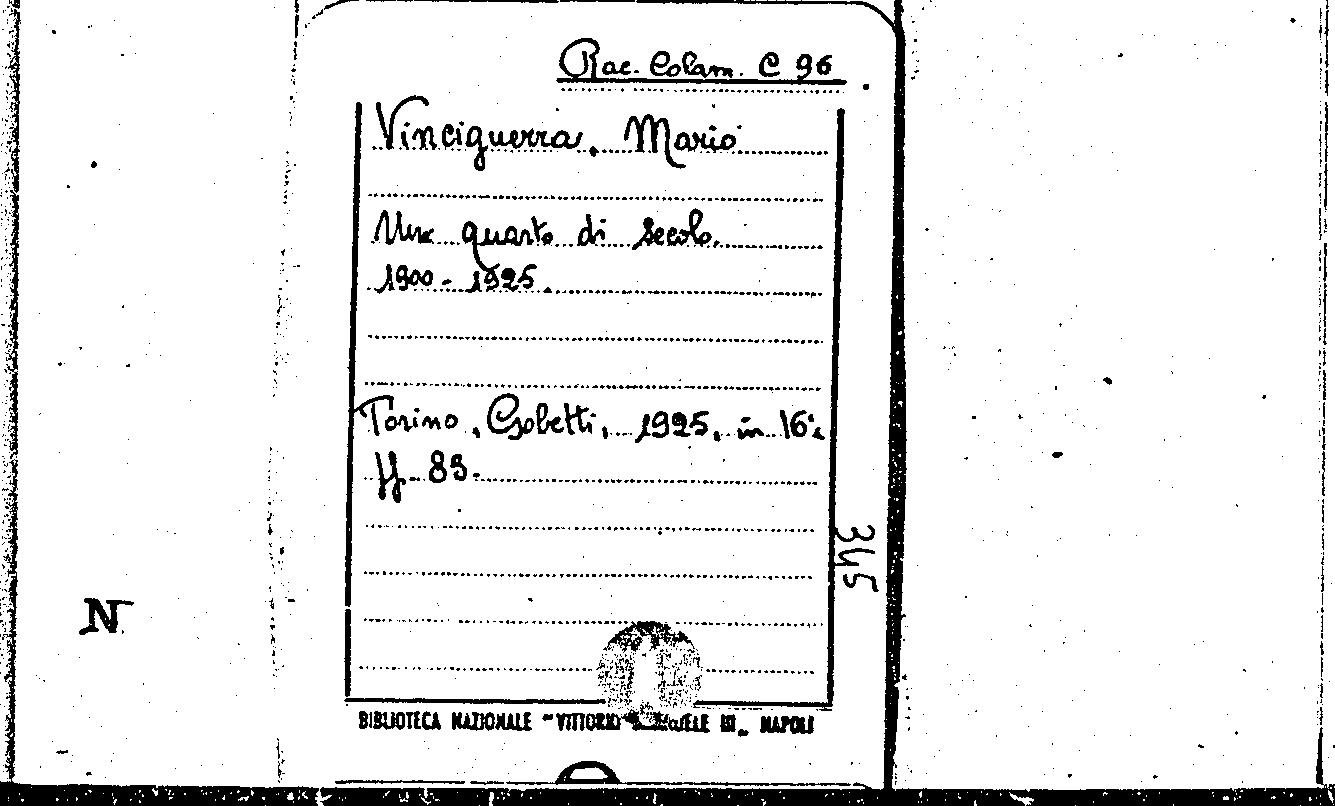 Rac. Colam. C 96
Vinciguerra, Mario
Un quarto di secolo.
1900-1925.
Torino, Gobetti, 1925, in 16°.
pp. 83.
345
N
BIBLIOTECA NAZIONALE "VITTORIO EMANUELE III„ NAPOLI